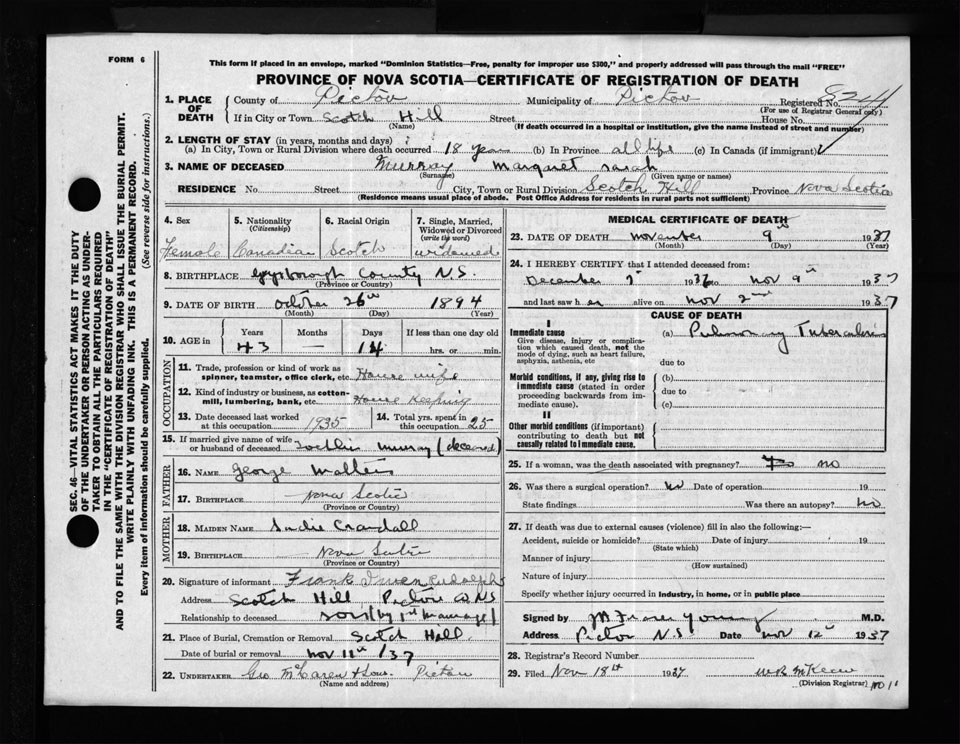 FORM 6
This form if placed in an envelope, marked "Dominion Statistics—Free, penalty for improper use $300," and properly addressed will pass through the mail "FREE"
PROVINCE OF NOVA SCOTIA—CERTIFICATE OF REGISTRATION OF DEATH
1. PLACE OF DEATH County of Pictou Municipality of Pictou Registered No.
(For use of Registrar General only)
If in City or Town Scotch Hill Street House No.
(Name) (If death occurred in a hospital or institution, give the name instead of street and number)
2. LENGTH OF STAY (in years, months and days)
(a) In City, Town or Rural Division where death occurred 18 years (b) In Province all life (c) In Canada (if immigrant)
3. NAME OF DECEASED Murray Margaret Sarah
(Surname) (Given name or names)
RESIDENCE No. Street City, Town or Rural Division Scotch Hill Province Nova Scotia
(Residence means usual place of abode. Post Office Address for residents in rural parts not sufficient)
4. Sex Female
5. Nationality (Citizenship) Canadian
6. Racial Origin Scotch
7. Single, Married, Widowed or Divorced (write the word) widowed
8. BIRTHPLACE Guysborough County N.S.
(Province or Country)
9. DATE OF BIRTH October 26th 1894
(Month) (Day) (Year)
10. AGE in Years 43 Months — Days 14 If less than one day old hrs. or min.
OCCUPATION
11. Trade, profession or kind of work as spinner, teamster, office clerk, etc. House wife
12. Kind of industry or business, as cotton-mill, lumbering, bank, etc. House Keeping
13. Date deceased last worked at this occupation 1935
14. Total yrs. spent in this occupation 25
15. If married give name of wife or husband of deceased Murray (deceased)
FATHER
16. NAME George
17. BIRTHPLACE Nova Scotia
(Province or Country)
MOTHER
18. MAIDEN NAME Crandall
19. BIRTHPLACE Nova Scotia
(Province or Country)
20. Signature of informant Frank Rudolph
Address Scotch Hill Pictou Co NS
Relationship to deceased son (by 1st marriage)
21. Place of Burial, Cremation or Removal Scotch Hill
Date of burial or removal Nov 11th /37
22. UNDERTAKER Geo McLaren & Sons Pictou
(Name and address)
MEDICAL CERTIFICATE OF DEATH
23. DATE OF DEATH November 9th 1937
(Month) (Day)
24. I HEREBY CERTIFY that I attended deceased from:
December 1936 to Nov 9th 1937
and last saw her alive on Nov 2nd 1937
CAUSE OF DEATH
I
Immediate cause
Give disease, injury or complication which caused death, not the mode of dying, such as heart failure, asphyxia, asthenia, etc
(a) Pulmonary Tuberculosis
due to
Morbid conditions, if any, giving rise to immediate cause (stated in order proceeding backwards from immediate cause).
(b)
due to
(c)
II
Other morbid conditions (if important) contributing to death but not causally related to immediate cause.
25. If a woman, was the death associated with pregnancy? no
26. Was there a surgical operation? no Date of operation 19
State findings Was there an autopsy? no
27. If death was due to external causes (violence) fill in also the following:—
Accident, suicide or homicide? Date of injury 19
(State which)
Manner of injury
(How sustained)
Nature of injury
Specify whether injury occurred in industry, in home, or in public place
Signed by Young M.D.
Address Pictou N.S. Date Nov 12th 1937
28. Registrar's Record Number
29. Filed Nov 18th 1937
(Division Registrar)
SEC. 46—VITAL STATISTICS ACT MAKES IT THE DUTY
OF THE UNDERTAKER OR PERSON ACTING AS UNDER-
TAKER TO OBTAIN ALL THE PARTICULARS REQUIRED
IN THE "CERTIFICATE OF REGISTRATION OF DEATH"
AND TO FILE THE SAME WITH THE DIVISION REGISTRAR WHO SHALL ISSUE THE BURIAL PERMIT.
WRITE PLAINLY WITH UNFADING INK. THIS IS A PERMANENT RECORD.
Every item of information should be carefully supplied. (See reverse side for instructions.)